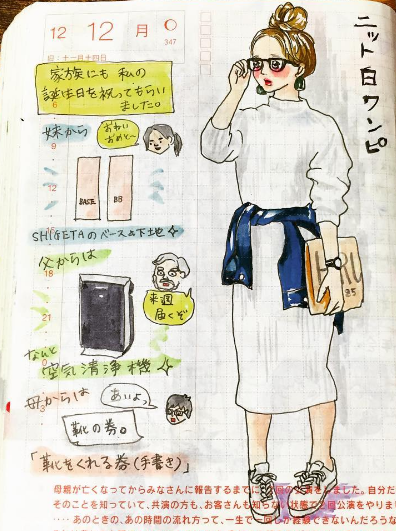 12 12 月
347
旧:十一月十四日
家族にも 私の
誕生日を祝ってもらい
ました。
妹から
おねい
おめと〜
6
9
12
BASE
BB
SHIGETAのベース&下地
父からは
18
来週
届くぞ
21
なんと
空気清浄機
0
母からは
あいよっ
靴の券。
「靴をくれる券(手書き)」
ニット白ワンピ
85
母親が亡くなってからみなさんに報告するまでに
公演をしました。自分だ
そのことを知っていて、共演の方も、お客さんも知らない状態で
回公演をやりま
‥‥あのとき、あの時間の流れ方って、一生で一回しか経験できないんだろうな